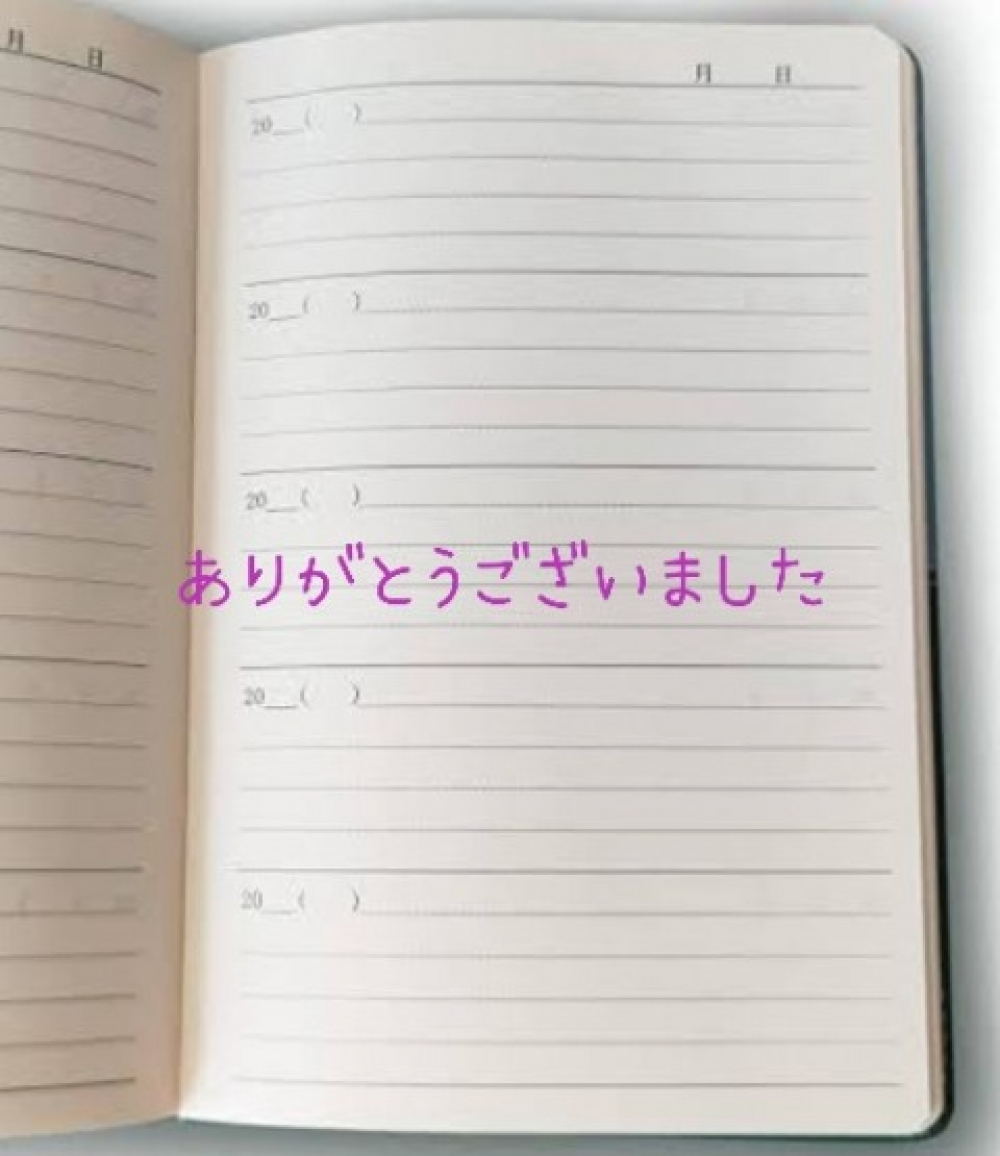 月 日
月 日
20__( )
20__( )
20__( )
ありがとうございました
20__( )
20__( )